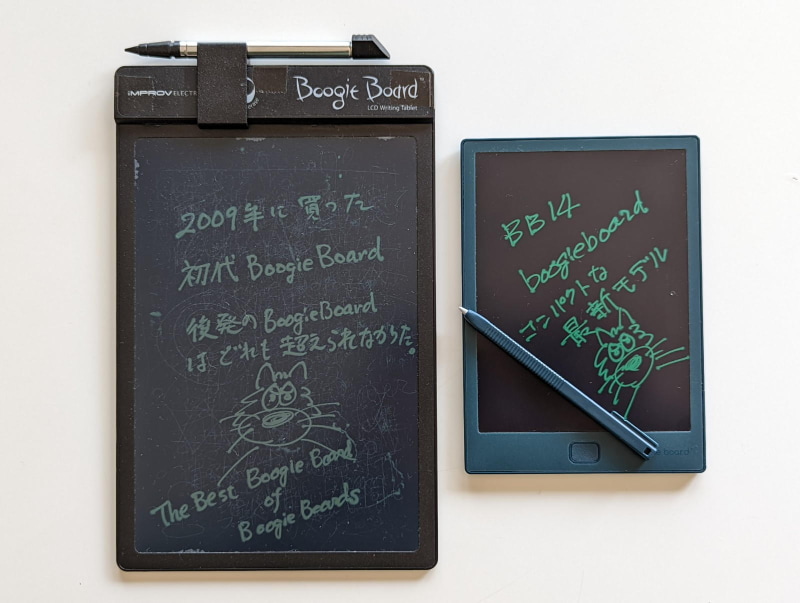 iMPROV ELECTR
Boogie Board
LCD Writing Tablet
2009年に買った
初代 Boogie Board
後発の BoogieBoard
はどれも超えられなかった。
The Best Boogie Board
of
Boogie Boards
BB14
boogieboard
コンパクトな
最新モデル
board